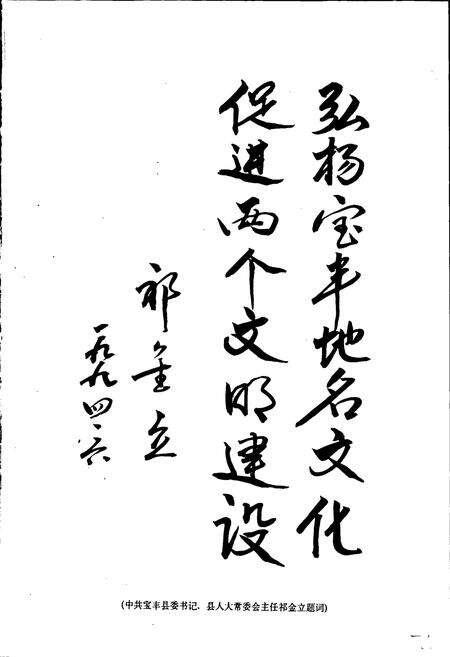 弘杨宝丰地名文化
促进两个文明建设
祁金立
一九九四·六
(中共宝丰县委书记、县人大常委会主任祁金立题词)